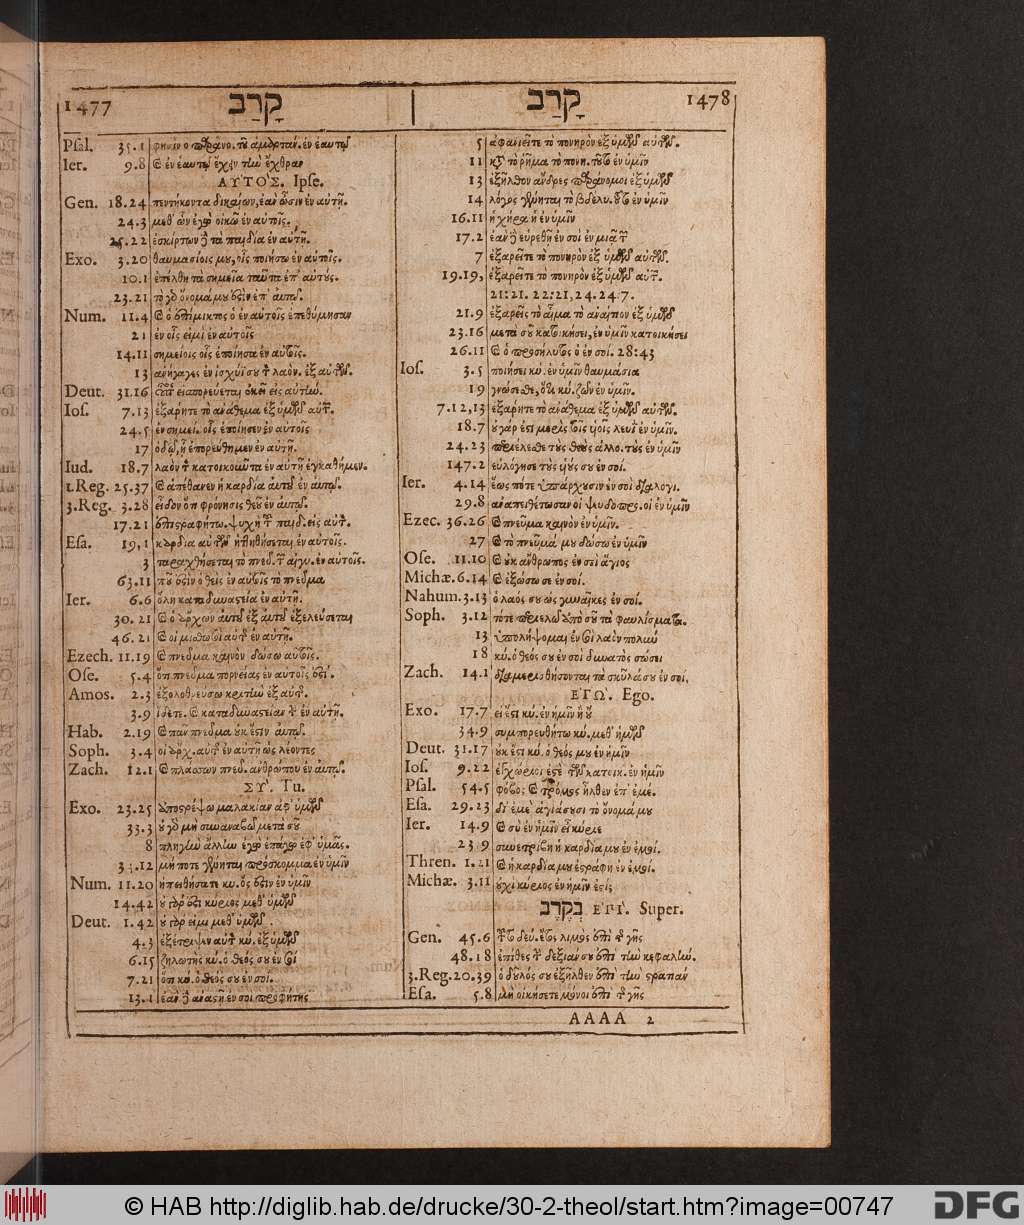 1477 קָרַב
Psal. 35.1 φησὶν ὁ παράνο. τοῦ ἁμαρτάν. ἐν ἑαυτῷ
Ier. 9.8 καὶ ἐν ἑαυτῷ ἔχει τὴν ἔχθραν
ΑΥΤΟΣ. Ipse.
Gen. 18.24 πεντήκοντα δικαίων, ἐὰν ὦσιν ἐν αὐτῇ.
24.3 μεθ' ὧν ἐγὼ οἰκῶ ἐν αὐτοῖς.
25.22 ἐσκίρτων δὲ τὰ παιδία ἐν αὐτῇ.
Exo. 3.20 θαυμασίοις μου, οἷς ποιήσω ἐν αὐτοῖς.
10.1 ἐπέλθῃ τὰ σημεῖα ταῦτα ἐπ' αὐτούς.
23.21 τὸ γὰρ ὄνομά μου ἐστὶν ἐπ' αὐτῷ.
Num. 11.4 καὶ ὁ ἐπίμικτος ὁ ἐν αὐτοῖς ἐπεθύμησαν
21 ἐν οἷς εἰμὶ ἐν αὐτοῖς
14.11 σημείοις οἷς ἐποίησα ἐν αὐτοῖς.
13 ἀνήγαγες ἐν ἰσχύϊ σου τὸν λαόν. ἐξ αὐτῶν.
Deut. 31.16 εἰσπορεύεται ἐκεῖ εἰς αὐτήν.
Ios. 7.13 ἐξαρῆτε τὸ ἀνάθεμα ἐξ ὑμῶν αὐτῶν.
24.5 ἐν σημεί. οἷς ἐποίησεν ἐν αὐτοῖς
17 ὁδῷ, ᾗ ἐπορεύθημεν ἐν αὐτῇ.
Iud. 18.7 λαὸν τὸν κατοικοῦντα ἐν αὐτῇ ἐγκαθήμεν.
1.Reg. 25.37 καὶ ἀπέθανεν ἡ καρδία αὐτοῦ ἐν αὐτῷ.
3.Reg. 3.28 εἶδον ὅτι φρόνησις θεοῦ ἐν αὐτῷ.
17.21 ἐπιστραφήτω. ψυχὴ τοῦ παιδ. εἰς αὐτ.
Esa. 19,1 καρδία αὐτῶν ἡττηθήσεται ἐν αὐτοῖς.
3 ταραχθήσεται τὸ πνεῦ. τῶν αἰγυ. ἐν αὐτοῖς.
63.11 ποῦ ἐστὶν ὁ θεὶς ἐν αὐτοῖς τὸ πνεῦμα
Ier. 6.6 ὅλη καταδυναστεία ἐν αὐτῇ.
30.21 καὶ ὁ ἄρχων αὐτοῦ ἐξ αὐτοῦ ἐξελεύσεται
46.21 καὶ οἱ μισθωτοὶ αὐτῆς ἐν αὐτῇ.
Ezech. 11.19 καὶ πνεῦμα καινὸν δώσω αὐτοῖς.
Ose. 5.4 ὅτι πνεῦμα πορνείας ἐν αὐτοῖς ἐστί.
Amos. 2.3 ἐξολοθρεύσω κριτὴν ἐξ αὐτ.
3.9 ἴδετε. καὶ καταδυναστείαν τὴν ἐν αὐτῇ.
Hab. 2.19 καὶ πᾶν πνεῦμα οὐκ ἔστιν αὐτῷ.
Soph. 3.4 οἱ ἄρχ. αὐτῆς ἐν αὐτῇ ὡς λέοντες
Zach. 12.1 καὶ πλάσσων πνεῦ. ἀνθρώπου ἐν αὐτῷ.
ΣΥ. Tu.
Exo. 23.25 ἀποστρέψω μαλακίαν ἀφ' ὑμῶν
33.3 οὐ γὰρ μὴ συναναβῶ μετὰ σοῦ
8 πληγὴν ἄλλην ἐγὼ ἐπάγω ἐφ' ὑμᾶς.
.12 μή ποτε γένηται πρόσκομμα ἐν ὑμῖν
Num. 11.20 ἠπειθήσατε κυ. ὅς ἐστιν ἐν ὑμῖν
14.42 οὐ γάρ ἐστι κύριος μεθ' ὑμῶν
Deut. 1.42 οὐ γάρ εἰμι μεθ' ὑμῶν.
4.3 ἐξέτριψεν αὐτ κύ. ἐξ ὑμῶν
6.15 ζηλωτὴς κύ. ὁ θεός σου ἐν σοί
7.21 ὅτι κύ. ὁ θεός σου ἐν σοί.
13.1 ἐὰν δὲ ἀναστῇ ἐν σοὶ προφήτης
קָרַב 1478
5 ἀφανιεῖτε τὸ πονηρὸν ἐξ ὑμῶν αὐτῶν.
11 κατὰ τὸ ῥῆμα τὸ πονη. τοῦτο ἐν ὑμῖν
13 ἐξῆλθον ἄνδρες παράνομοι ἐξ ὑμῶν
14 λόγος γεγένηται τὸ βδέλυ. τοῦτο ἐν ὑμῖν
16.11 ἡ χήρα ἡ ἐν ὑμῖν
17.2 ἐὰν δὲ εὑρεθῇ ἐν σοὶ ἐν μιᾷ τῶν
7 ἐξαρεῖτε τὸ πονηρὸν ἐξ ὑμῶν αὐτῶν.
19.19, ἐξαρεῖτε τὸ πονηρὸν ἐξ ὑμῶν αὐτ.
21:21. 22:21, 24. 24:7.
21.9 ἐξαρεῖς τὸ αἷμα τὸ ἀναίτιον ἐξ ὑμῶν
23.16 μετὰ σοῦ κατοικήσει, ἐν ὑμῖν κατοικήσει
26.11 καὶ ὁ προσήλυτος ὁ ἐν σοί. 28:43
Ios. 3.5 ποιήσει κύ. ἐν ὑμῖν θαυμάσια
19 γνώσεσθε, ὅτι κύ. ζῶν ἐν ὑμῖν.
7.12,13 ἐξαρῆτε τὸ ἀνάθεμα ἐξ ὑμῶν αὐτῶν.
18.7 οὐ γάρ ἐστι μερὶς τοῖς υἱοῖς λευῒ ἐν ὑμῖν.
24.23 περιέλεσθε τοὺς θεοὺς ἀλλο. τοὺς ἐν ὑμῖν
147.2 εὐλόγησε τοὺς υἱούς σου ἐν σοί.
Ier. 4.14 ἕως πότε ὑπάρχουσιν ἐν σοὶ διαλογι.
29.8 ἀναπειθέτωσαν οἱ ψευδοπρο. οἱ ἐν ὑμῖν
Ezec. 36.26 καὶ πνεῦμα καινὸν ἐν ὑμῖν.
27 καὶ τὸ πνεῦμά μου δώσω ἐν ὑμῖν
Ose. 11.10 καὶ οὐκ ἄνθρωπος ἐν σοὶ ἅγιος
Michæ. 6.14 καὶ ἐξώσω σε ἐν σοί.
Nahum. 3.13 ὁ λαός σου ὡς γυναῖκες ἐν σοί.
Soph. 3.12 τότε περιελῶ ἀπὸ σοῦ τὰ φαυλίσματα.
13 ὑπολήψομαι ἐν σοὶ λαὸν πολὺν
18 κύ. ὁ θεός σου ἐν σοὶ δυνατὸς σώσει
Zach. 14.1 διαμερισθήσονται τὰ σκῦλά σου ἐν σοί.
ΕΓΩ. Ego.
Exo. 17.7 εἰ ἔστι κύ. ἐν ἡμῖν ἢ οὔ
34.9 συμπορευθήτω κύ. μεθ' ἡμῶν
Deut. 31.17 οὐκ ἔστι κύ. ὁ θεός μου ἐν ἡμῖν
Ios. 9.22 ἐγχώριοί ἐστε τῶν κατοικ. ἐν ἡμῖν
Psal. 54.5 φόβος καὶ τρόμος ἦλθεν ἐπ' ἐμέ.
Esa. 29.23 δι' ἐμὲ ἁγιάσουσι τὸ ὄνομά μου
Ier. 14.9 καὶ σὺ ἐν ἡμῖν εἶ κύριε
23 9 συνετρίβη ἡ καρδία μου ἐν ἐμοί.
Thren. 1.21 καὶ ἡ καρδία μου ἐστράφη ἐν ἐμοί.
Michæ. 3.11 οὐχὶ κύριος ἐν ἡμῖν ἐστι;
בְּקֶרֶב ΕΠΙ. Super.
Gen. 45.6 τοῦτο δεύ. ἔτος λιμὸς ἐπὶ τῆς γῆς
48.18 ἐπίθες τὴν δεξιάν σου ἐπὶ τὴν κεφαλήν.
3.Reg. 20.39 ὁ δοῦλός σου ἐξῆλθεν ἐπὶ τὴν στρατιὰν
Esa. 5.8 μὴ οἰκήσετε μόνοι ἐπὶ τῆς γῆς
AAAA 2
© HAB http://diglib.hab.de/drucke/30-2-theol/start.htm?image=00747
DFG